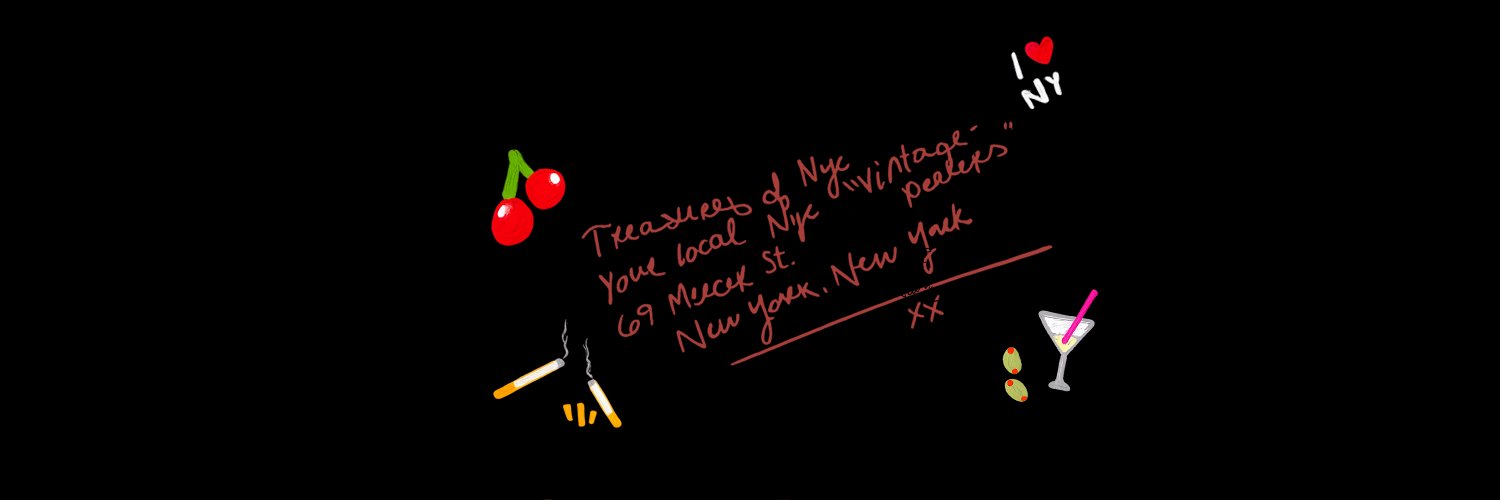 I ❤ NY
Treasures of Nyc
your local Nyc "vintage-
dealers"
69 Mercer St.
New York, New York
xx